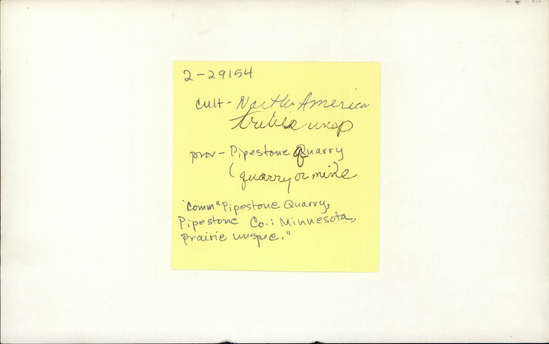 2-29154
cult - North America
tribes unsp
prov - Pipestone Quarry
(quarry or mine
Comm "Pipestone Quarry,
Pipestone Co.: Minnesota,
prairie unspe."